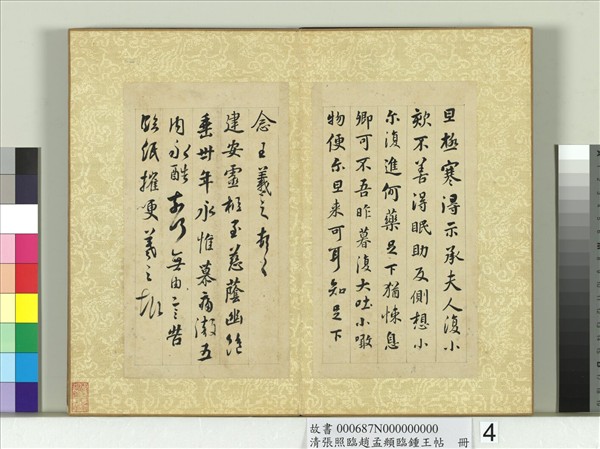 旦極寒得示承夫人復小
欬不善得眠助反側想小
尔復進何藥足下猶悚息
卿可不吾昨暮復大吐小噉
物便尔旦来可耳知足下
念王羲之頓首
建安靈柩至慈蔭幽絕
垂卅年永惟慕痛徹五
內永酷奈何無由言告
臨紙摧哽羲之報
故書 000687N000000000
清張照臨趙孟頫臨鍾王帖 冊
4